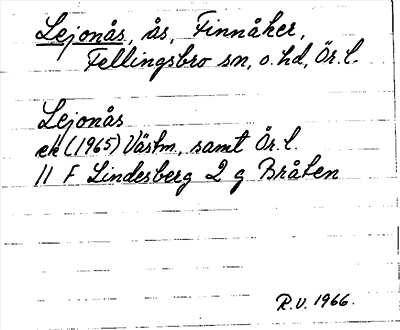 Lejonås, ås, Finnåker,
Fellingsbro sn, o. hd, Ör. l.
Lejonås
ek (1965) Västm. samt Ör. l.
11 F Lindesberg 2 g Bråten
R.V. 1966.